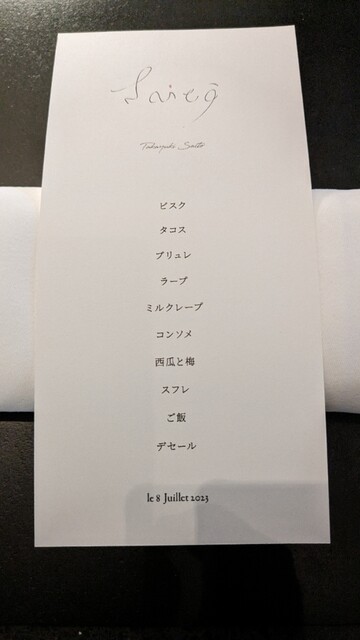 Takayuki Saito
ビスク
タコス
ブリュレ
ラープ
ミルクレープ
コンソメ
西瓜と梅
スフレ
ご飯
デセール
le 8 Juillet 2023